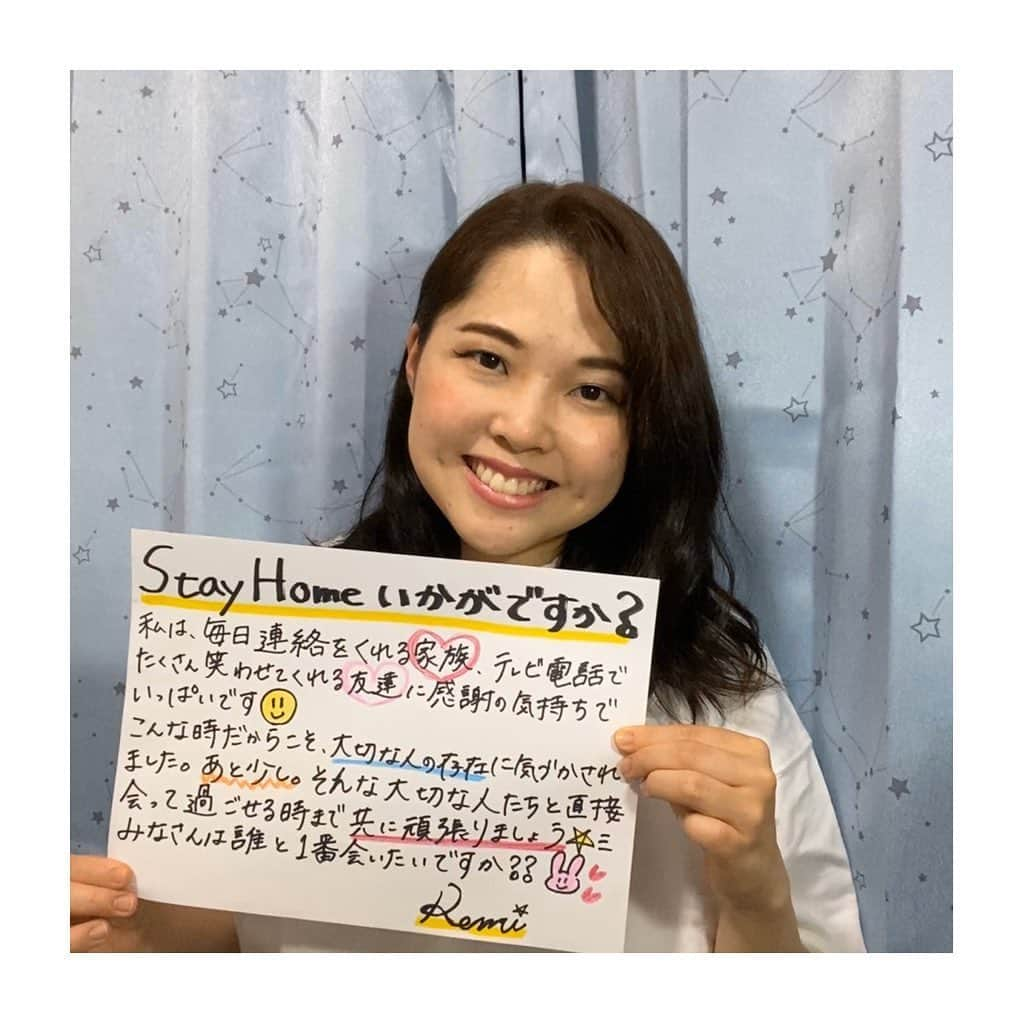 Stay Home いかがですか?
私は、毎日連絡をくれる家族、テレビ電話で
たくさん笑わせてくれる友達に感謝の気持ちで
いっぱいです
こんな時だからこそ、大切な人の存在に気づかされ
ました。あと少し。そんな大切な人たちと直接
会って過ごせる時まで共に頑張りましょう
みなさんは誰と1番会いたいですか??
Remi